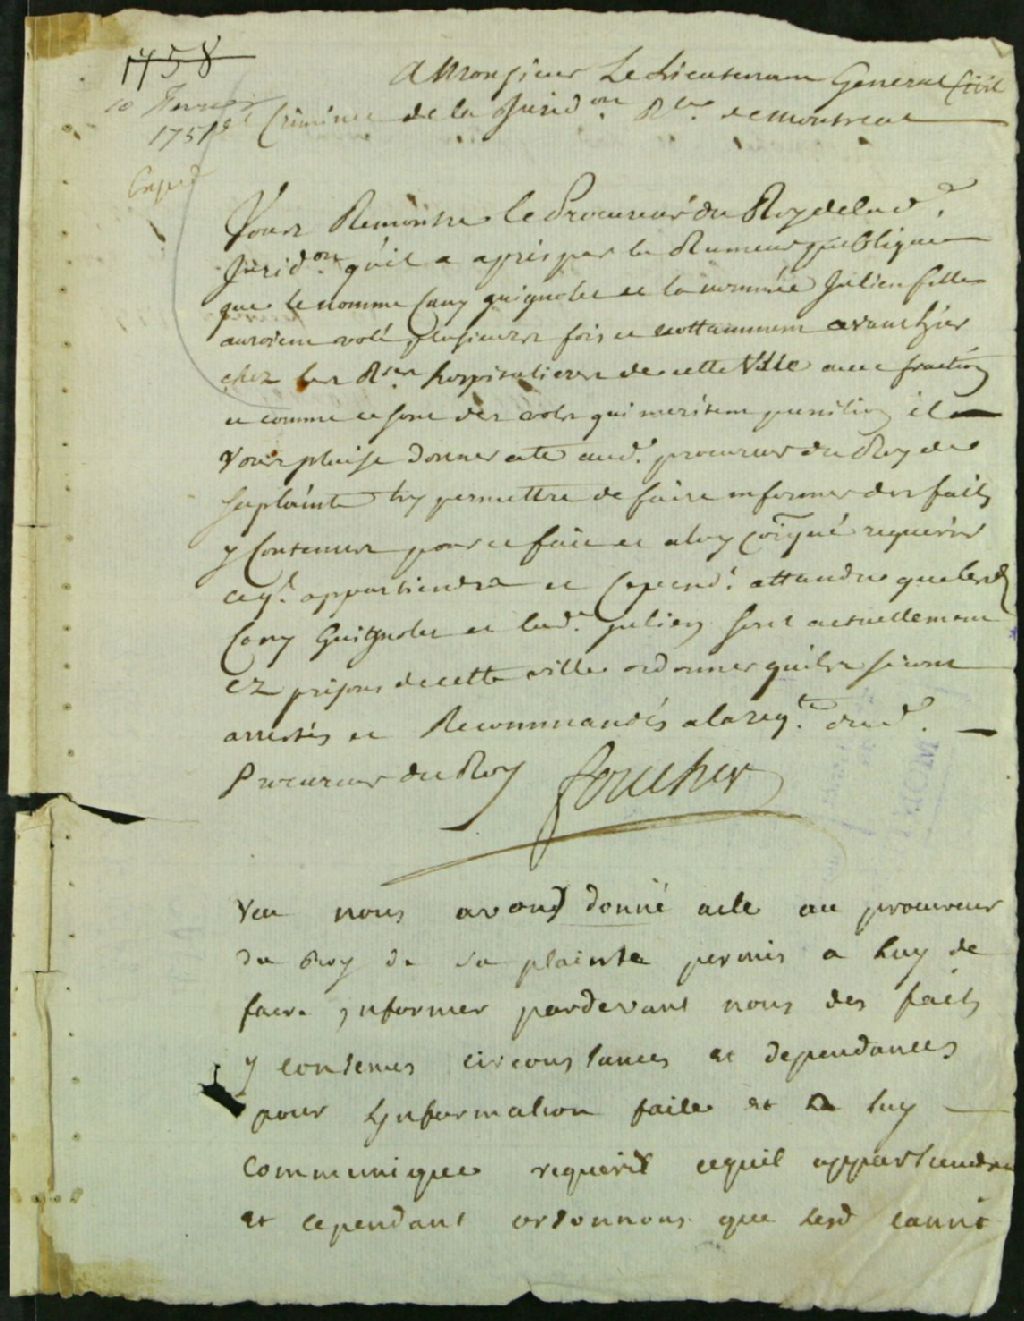 1758
10 fevrier
1751
A Monsieur Le Lieutenant General Civil
Criminel de la Jurid.on R.le de Montreal
Vous Remontre le Procureur du Roy de lad.
Jurid.on qu'il a apris par la Rumeur publique
que le nommé Cany guignolet et la nommée Julien fille
auroient volé plusieurs fois et nottamment avanthier
chez les R.ses hospitalieres de cette Ville avec fraction
et comme ce sont des vols qui meritent punition il
Vous plaise Donner acte aud. procureur du Roy de
sa plainte luy permettre de faire informer des faits
y Contenus pour ce fait et a luy co͞iqué requerir
ce q. appartiendra et Cepend. attandu que lesd
Cany Guignolet et lad. Julien sont actuellement
ez prisons de cette ville ordonner quils seront
arrestés et Recommandés a la req.te dud.
Procureur du Roy foucher
Veu nous avons donné acte au procureur
du Roy de sa plainte permis a luy de
faire informer pardevant nous des faits
y contenus circonstances et dependances
pour L'jnformation faite et a luy
Communiquée requerir cequil appartiendra
et cependant ordonnons que lesd canné